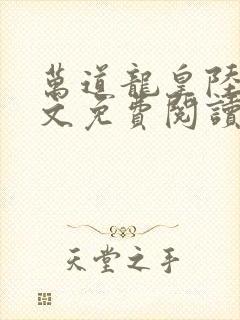 萬道龍皇陸
文免費閱讀
天堂之手